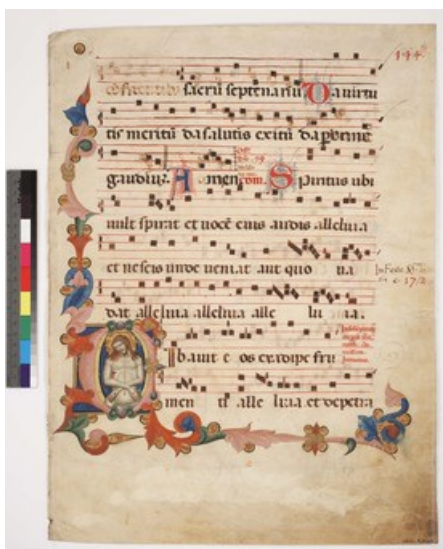 144
sacrū septenariū Da virtu
tis meritū da salutis exitū da pérenne
gaudiuz. Amen com. Spiritus ubi
vult spirat et vocē eius audis alleluia
et nescis unde veniat aut quo va
dat alleluia alleluia alle lu ia.
Cibavit e os ex adipe fru
men ti alle luia et de petra